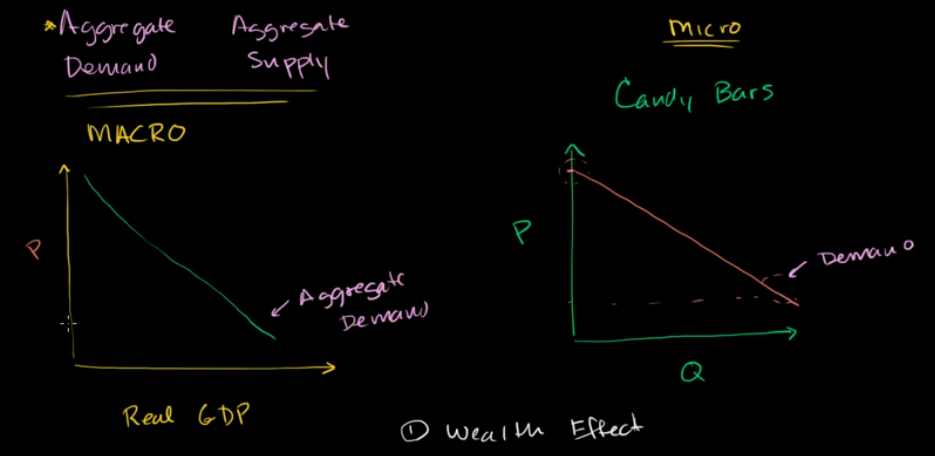 * Aggregate Demand
Aggregate Supply
MACRO
P
Aggregate
Demand
Real GDP
Micro
Candy Bars
P
Demand
Q
① Wealth Effect